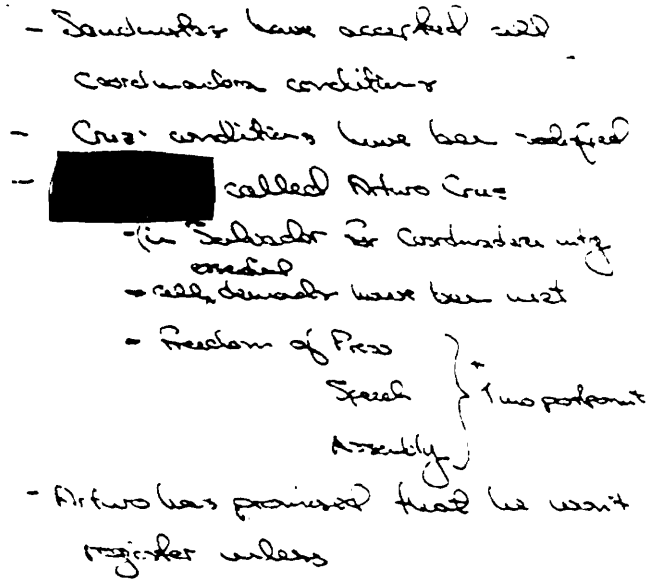 - Sandinistas have accepted all
Coordinadora conditions
- Cruz conditions have been satisfied
- called Arturo Cruz
- (in Salvador for Coordinadora mtg
essential
- all demands have been met
- Freedom of Press
Speech
Assembly
+ 1 mo postponmt
- Arturo has promised that he won't
register unless